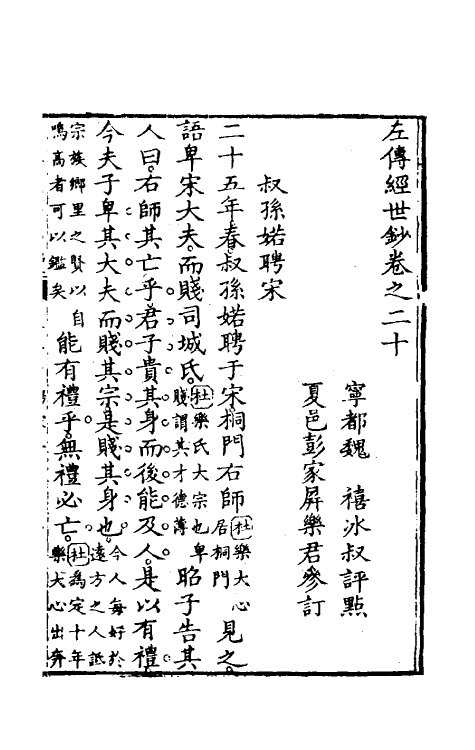 左傳經世鈔卷之二十
寧都魏　禧冰叔評點
夏邑彭家屏樂君參訂
叔孫婼聘宋
二十五年春叔孫婼聘于宋桐門右師杜樂大心居桐門見之
語卑宋大夫而賤司城氏杜樂氏大宗也卑賤謂其才德薄昭子告其
人曰右師其亡乎君子貴其身而後能及人是以有禮
今夫子卑其大夫而賤其宗是賤其身也今人每好於遠方之人詆
宗族鄉里之賢以自鳴高者可以鑑矣能有禮乎無禮必亡杜為定十年樂大心出奔